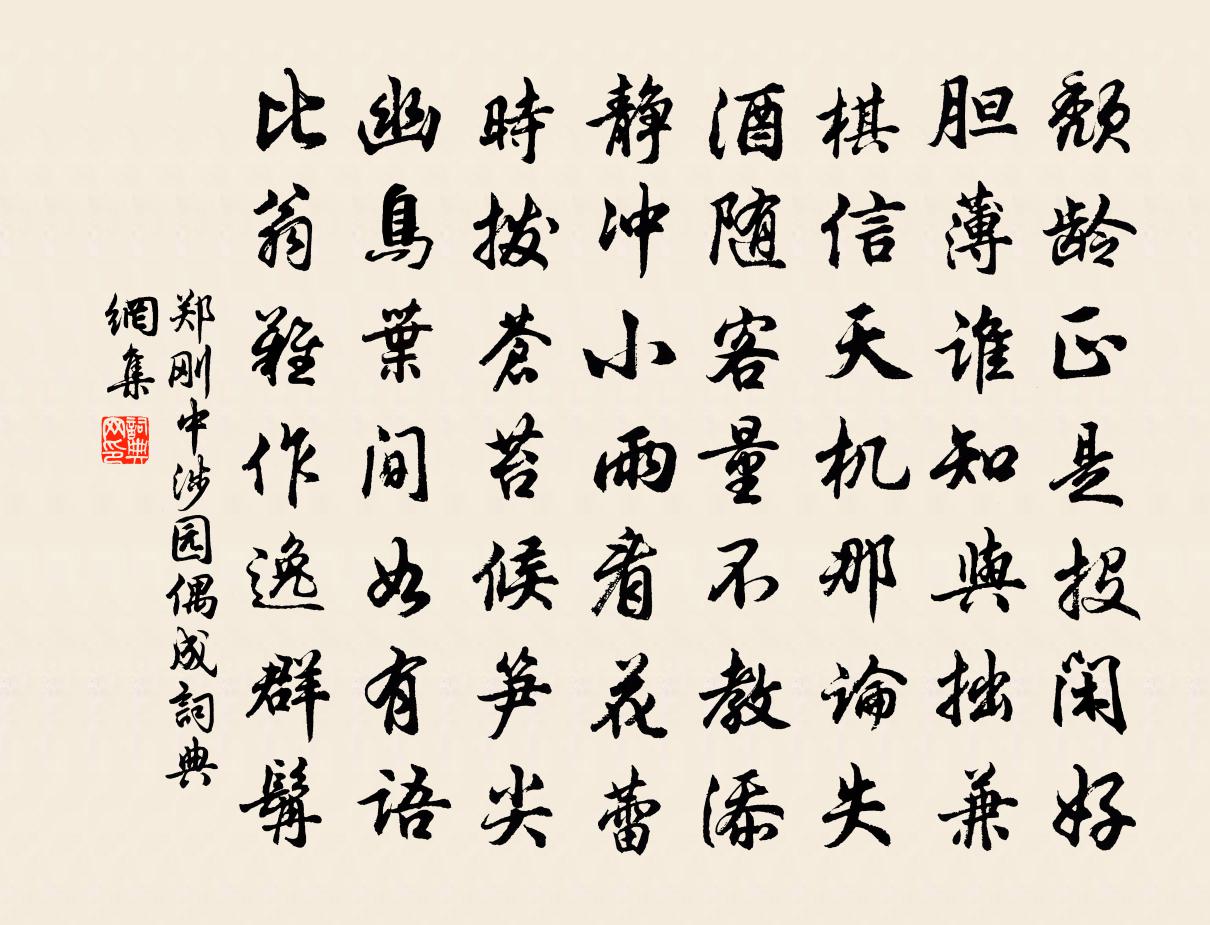 颓龄正是投闲好
胆薄谁知與拙兼
棋信天机那论失
酒随客量不教添
静冲小雨看花蕾
時拨蒼苔候笋尖
幽鳥葉间如有语
比翁难作逸群髯
郑刚中涉园偶成詞典
網集
詞典网印